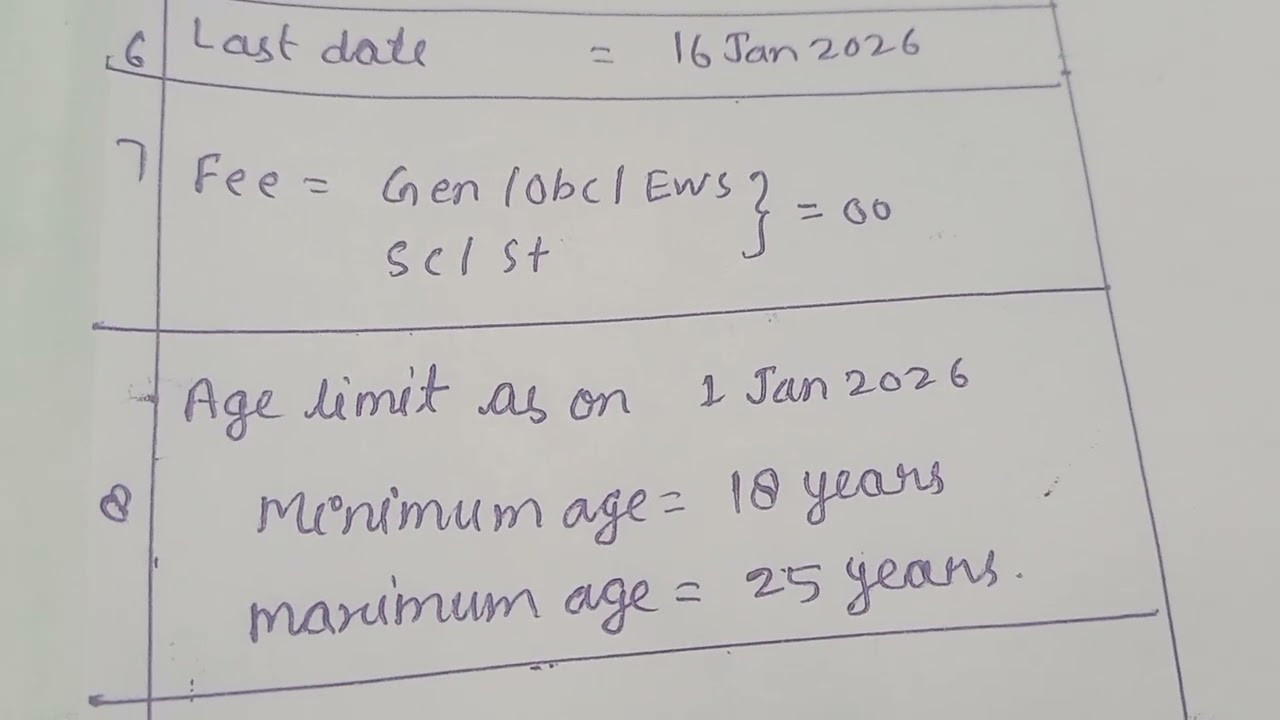 6 Last date = 16 Jan 2026
7 Fee = Gen/Obc/Ews } = 00
Sc/St
Age limit as on 1 Jan 2026
8 Minimum age = 18 years
maximum age = 25 years.